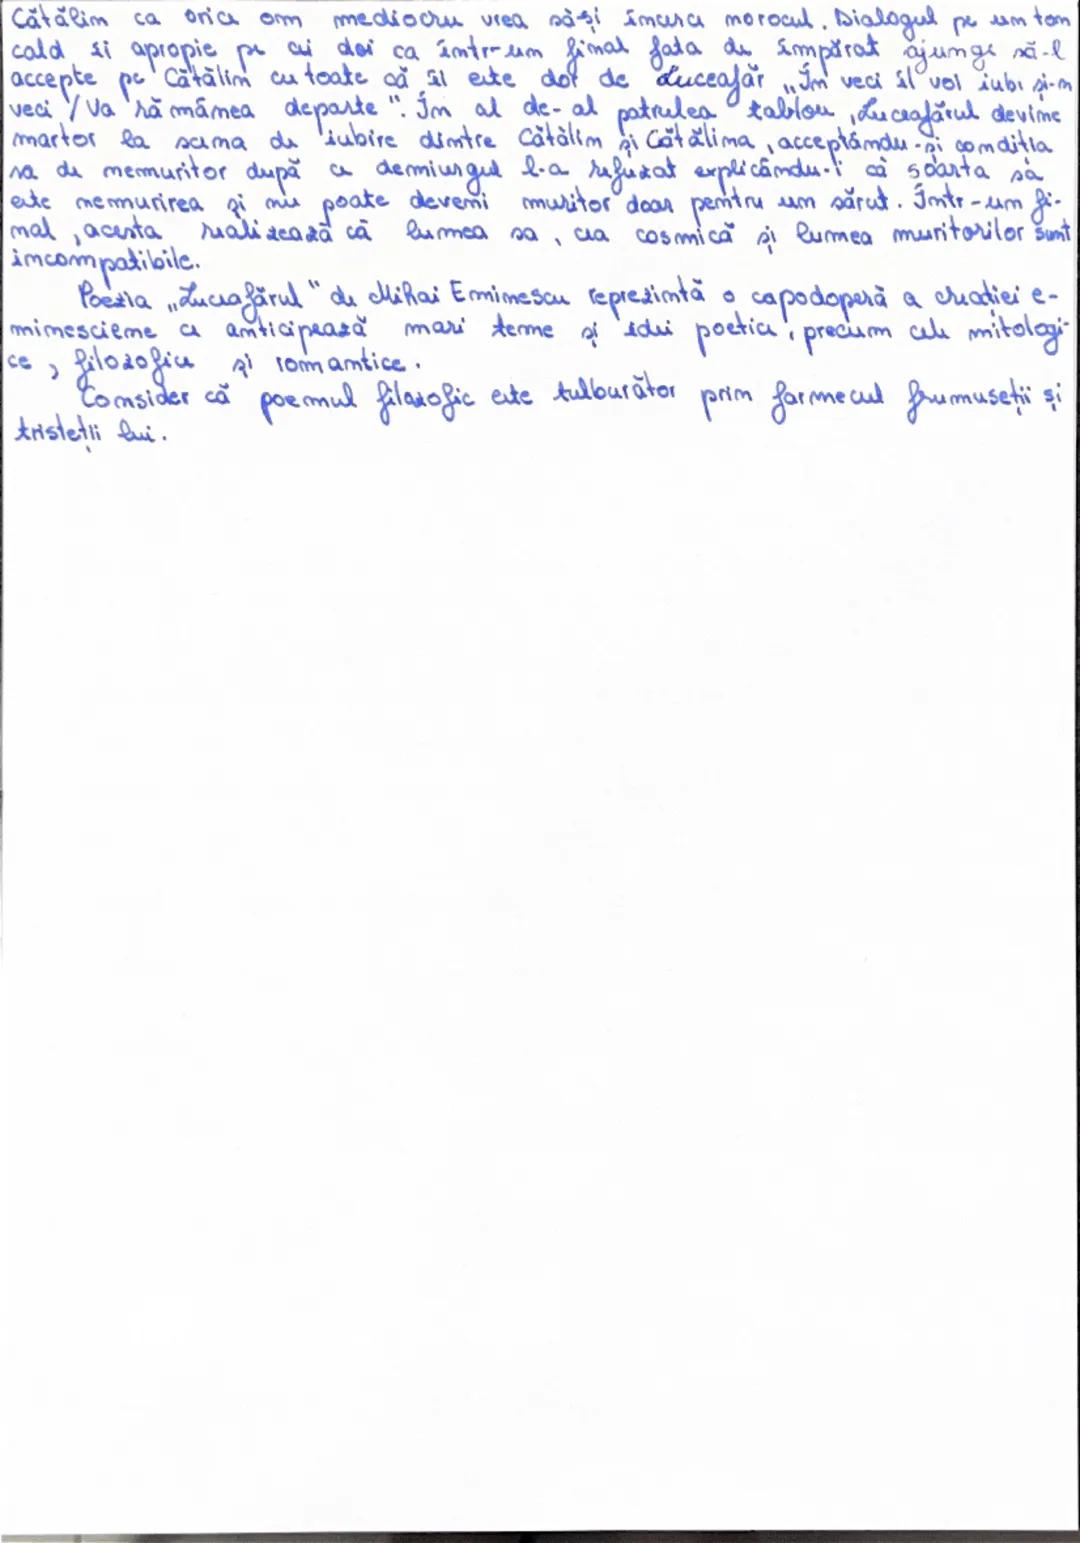 Cătălin ca orice om mediocru vrea să-și încerce norocul. Dialogul pe un ton
cald îi apropie pe cei doi ca într-un final fata de împărat ajunge să-l
accepte pe Cătălin cu toate că îi este dor de Luceafăr „În veci îl voi iubi și-n
veci / Va rămânea departe". În al de-al patrulea tablou, Luceafărul devine
martor la scena de iubire dintre Cătălin și Cătălina, acceptându-și condiția
sa de nemuritor după ce demiurgul l-a refuzat explicându-i că soarta sa
este nemurirea și nu poate deveni muritor doar pentru un sărut. Într-un fi-
nal, acesta realizează că lumea sa, cea cosmică și lumea muritorilor sunt
incompatibile.
Poezia „Luceafărul" de Mihai Eminescu reprezintă o capodoperă a creației e-
minesciene ce anticipează mari teme și idei poetice, precum cele mitologi-
ce, filozofice și romantice.
Consider că poemul filozofic este tulburător prin farmecul frumuseții și
tristeții lui.